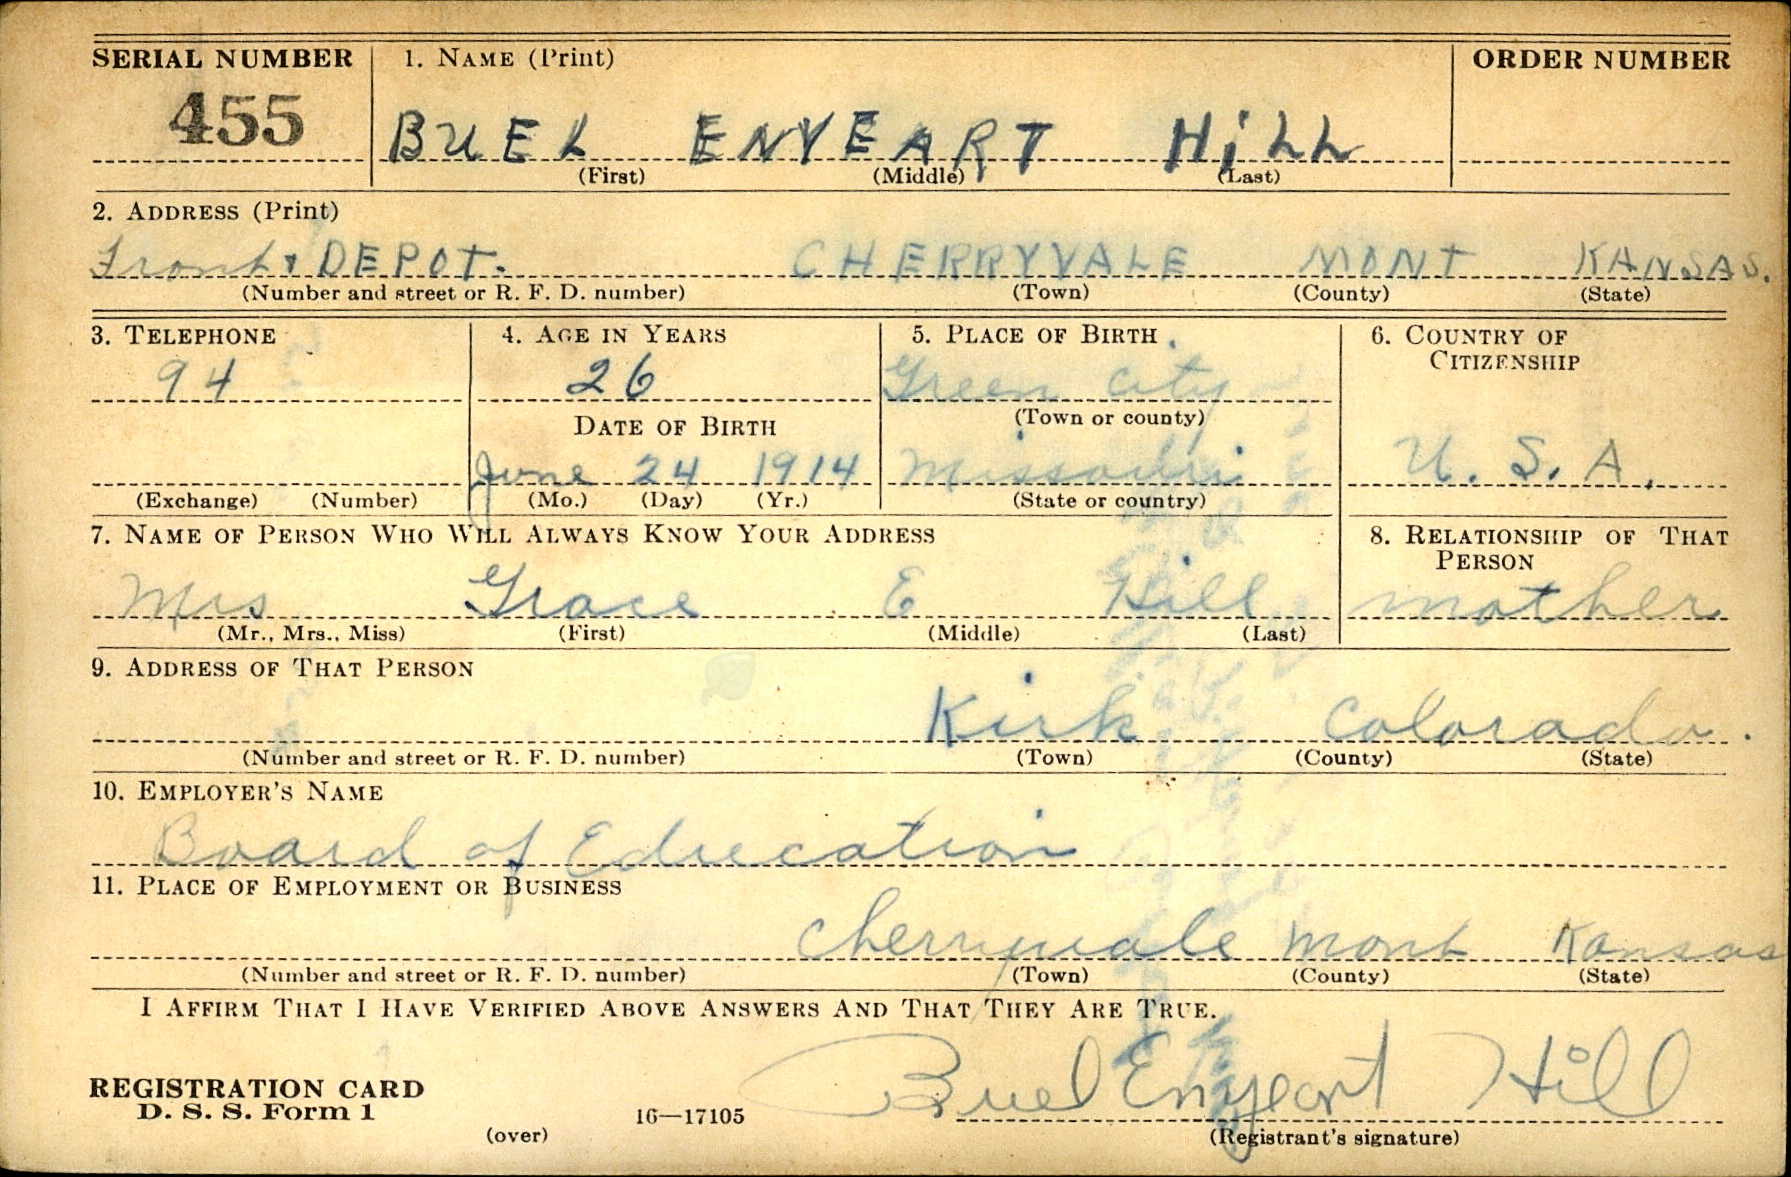 SERIAL NUMBER 1. NAME (Print) ORDER NUMBER
455 BUEL ENYEART HiLL
(First) (Middle) (Last)
2. ADDRESS (Print)
Front & DEPOT. CHERRYVALE MONT KANSAS.
(Number and street or R. F. D. number) (Town) (County) (State)
3. TELEPHONE 4. AGE IN YEARS 5. PLACE OF BIRTH 6. COUNTRY OF CITIZENSHIP
94 26 Green City
DATE OF BIRTH (Town or county)
June 24 1914 Missouri U. S. A.
(Exchange) (Number) (Mo.) (Day) (Yr.) (State or country)
7. NAME OF PERSON WHO WILL ALWAYS KNOW YOUR ADDRESS 8. RELATIONSHIP OF THAT PERSON
Mrs Grace E Hill mother
(Mr., Mrs., Miss) (First) (Middle) (Last)
9. ADDRESS OF THAT PERSON
Kirk Colorado.
(Number and street or R. F. D. number) (Town) (County) (State)
10. EMPLOYER'S NAME
Board of Education
11. PLACE OF EMPLOYMENT OR BUSINESS
Cherryvale Mont Kansas
(Number and street or R. F. D. number) (Town) (County) (State)
I AFFIRM THAT I HAVE VERIFIED ABOVE ANSWERS AND THAT THEY ARE TRUE.
Buel Enyeart Hill
REGISTRATION CARD
D. S. S. Form 1 16—17105
(over) (Registrant's signature)